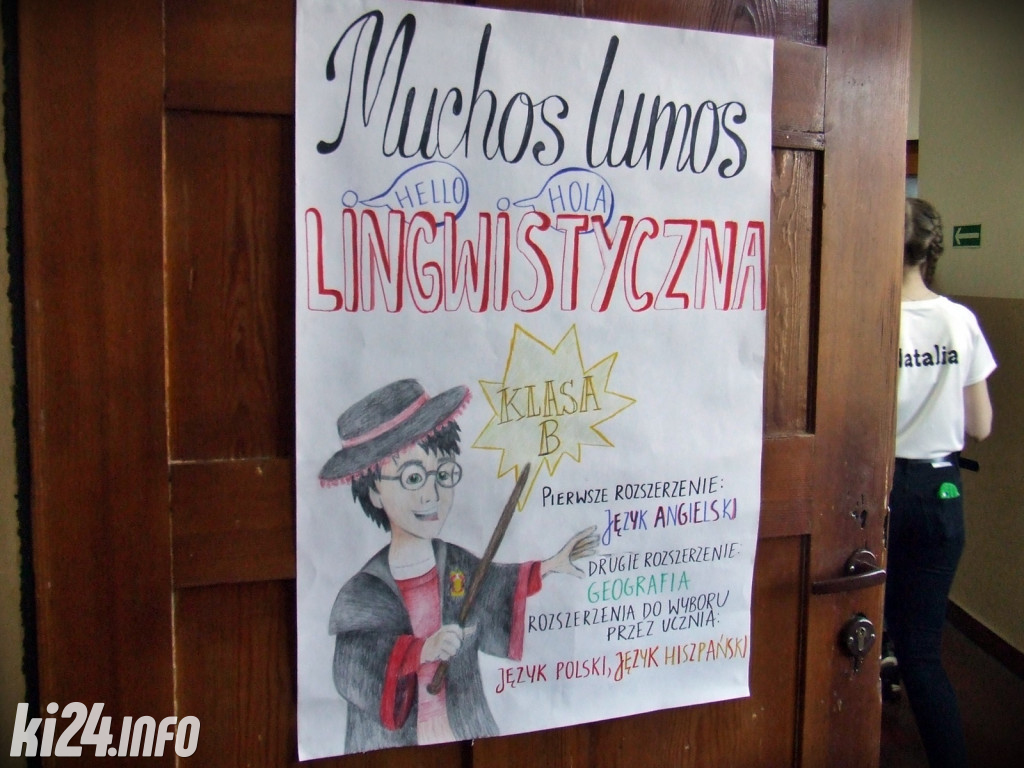 Muchos lumos
HELLO
HOLA
LINGWISTYCZNA
KLASA
B
PIERWSZE ROZSZERZENIE:
JĘZYK ANGIELSKI
DRUGIE ROZSZERZENIE:
GEOGRAFIA
ROZSZERZENIA DO WYBORU
PRZEZ UCZNIA:
JĘZYK POLSKI, JĘZYK HISZPAŃSKI
Natalia
ki24.info